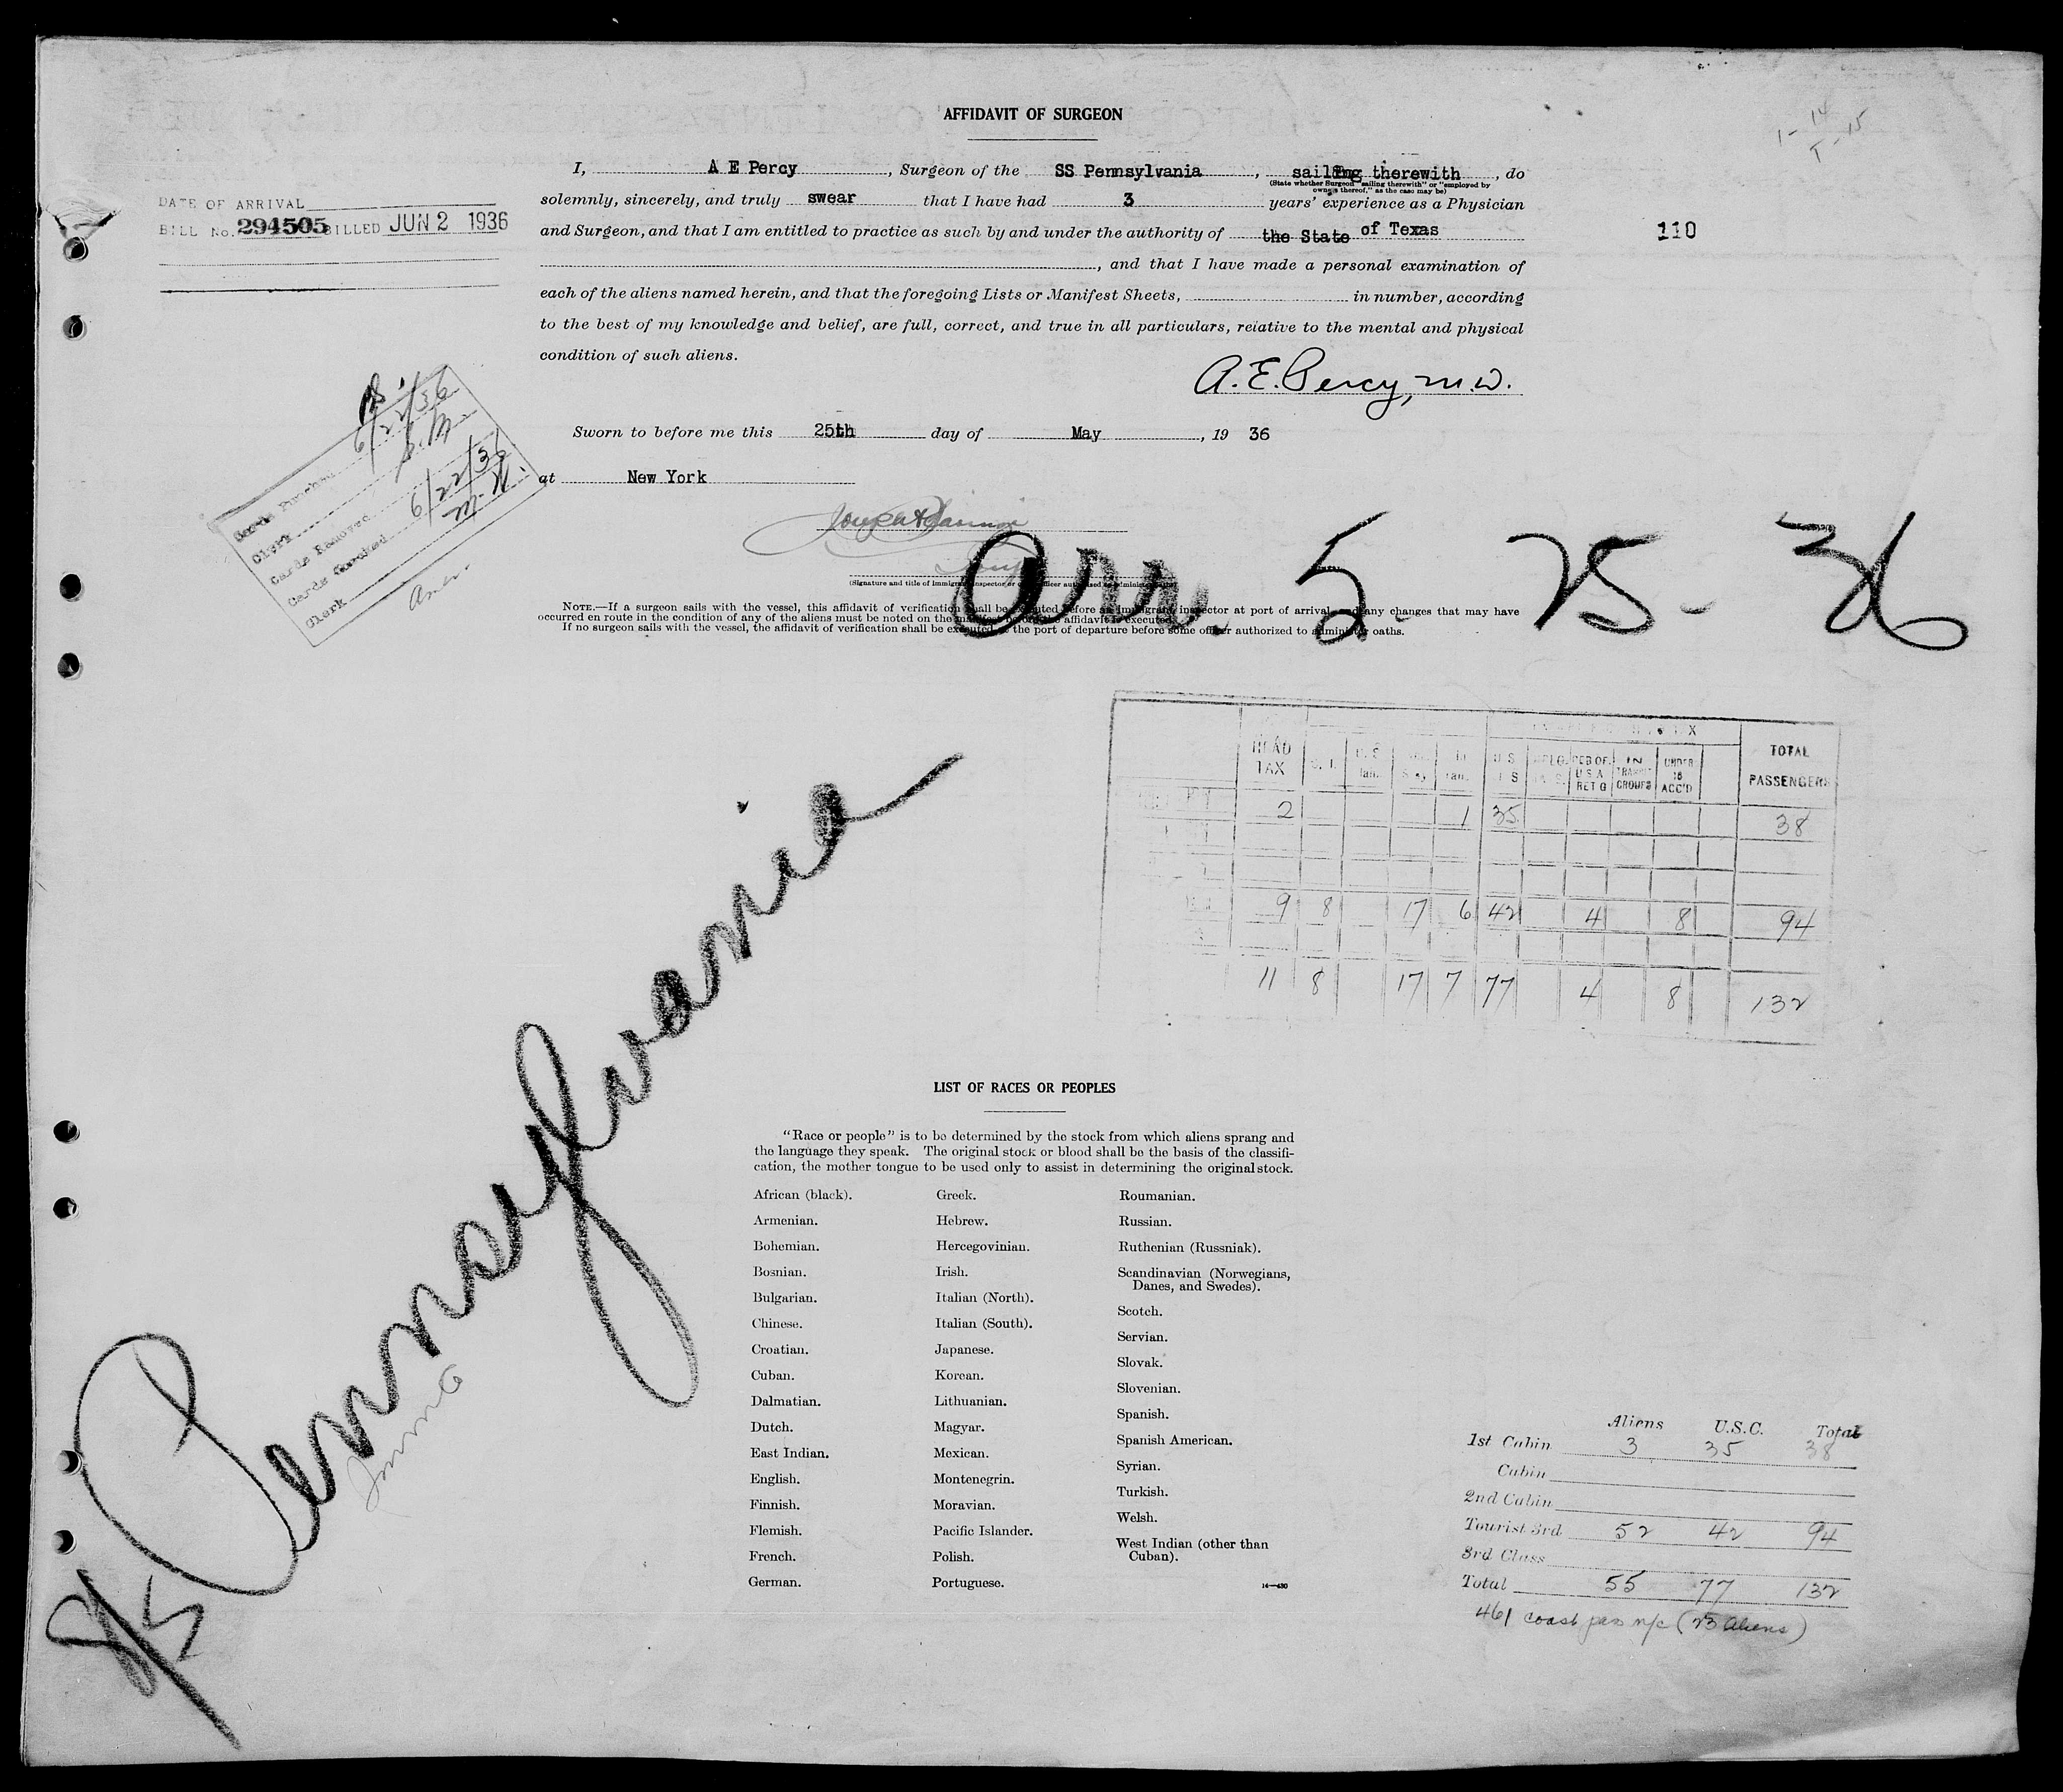 AFFIDAVIT OF SURGEON
1-14
T-15
I, A E Percy, Surgeon of the SS Pennsylvania, sailing therewith, do
(State whether Surgeon "sailing therewith" or "employed by
owners thereof," as the case may be)
solemnly, sincerely, and truly swear that I have had 3 years' experience as a Physician
and Surgeon, and that I am entitled to practice as such by and under the authority of the State of Texas
, and that I have made a personal examination of
each of the aliens named herein, and that the foregoing Lists or Manifest Sheets, in number, according
to the best of my knowledge and belief, are full, correct, and true in all particulars, relative to the mental and physical
condition of such aliens.
A. E. Percy, M.D.
DATE OF ARRIVAL
BILL No. 294505 BILLED JUN 2 1936
110
Sworn to before me this 25th day of May, 19 36
at New York
6/22/36
S.M
Clerk
Cards Removed 6/22/36
Cards
Clerk
(Signature and title of immigrant inspector or other officer authorized to administer oaths)
Arr. 5-25-36
NOTE.—If a surgeon sails with the vessel, this affidavit of verification shall be executed before an immigrant inspector at port of arrival, and any changes that may have
occurred en route in the condition of any of the aliens must be noted on the manifest before the affidavit is executed.
If no surgeon sails with the vessel, the affidavit of verification shall be executed at the port of departure before some officer authorized to administer oaths.
HEAD TAX
U S
IN TRANSIT GROUPS
UNDER 16 ACC'D
TOTAL PASSENGERS
2 1 35 38
9 8 17 6 42 4 8 94
11 8 17 7 77 4 8 132
S/S Pennsylvania
LIST OF RACES OR PEOPLES
"Race or people" is to be determined by the stock from which aliens sprang and
the language they speak. The original stock or blood shall be the basis of the classifi-
cation, the mother tongue to be used only to assist in determining the original stock.
African (black).
Armenian.
Bohemian.
Bosnian.
Bulgarian.
Chinese.
Croatian.
Cuban.
Dalmatian.
Dutch.
East Indian.
English.
Finnish.
Flemish.
French.
German.
Greek.
Hebrew.
Hercegovinian.
Irish.
Italian (North).
Italian (South).
Japanese.
Korean.
Lithuanian.
Magyar.
Mexican.
Montenegrin.
Moravian.
Pacific Islander.
Polish.
Portuguese.
Roumanian.
Russian.
Ruthenian (Russniak).
Scandinavian (Norwegians,
Danes, and Swedes).
Scotch.
Servian.
Slovak.
Slovenian.
Spanish.
Spanish American.
Syrian.
Turkish.
Welsh.
West Indian (other than
Cuban).
14—430
Aliens U.S.C. Total
1st Cabin 3 35 38
Cabin
2nd Cabin
Tourist 3rd 52 42 94
3rd Class
Total 55 77 132
461 coast pas n/c (23 aliens)